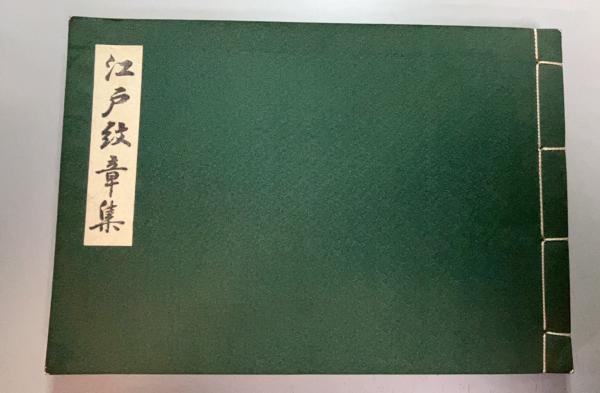 江戸紋章集